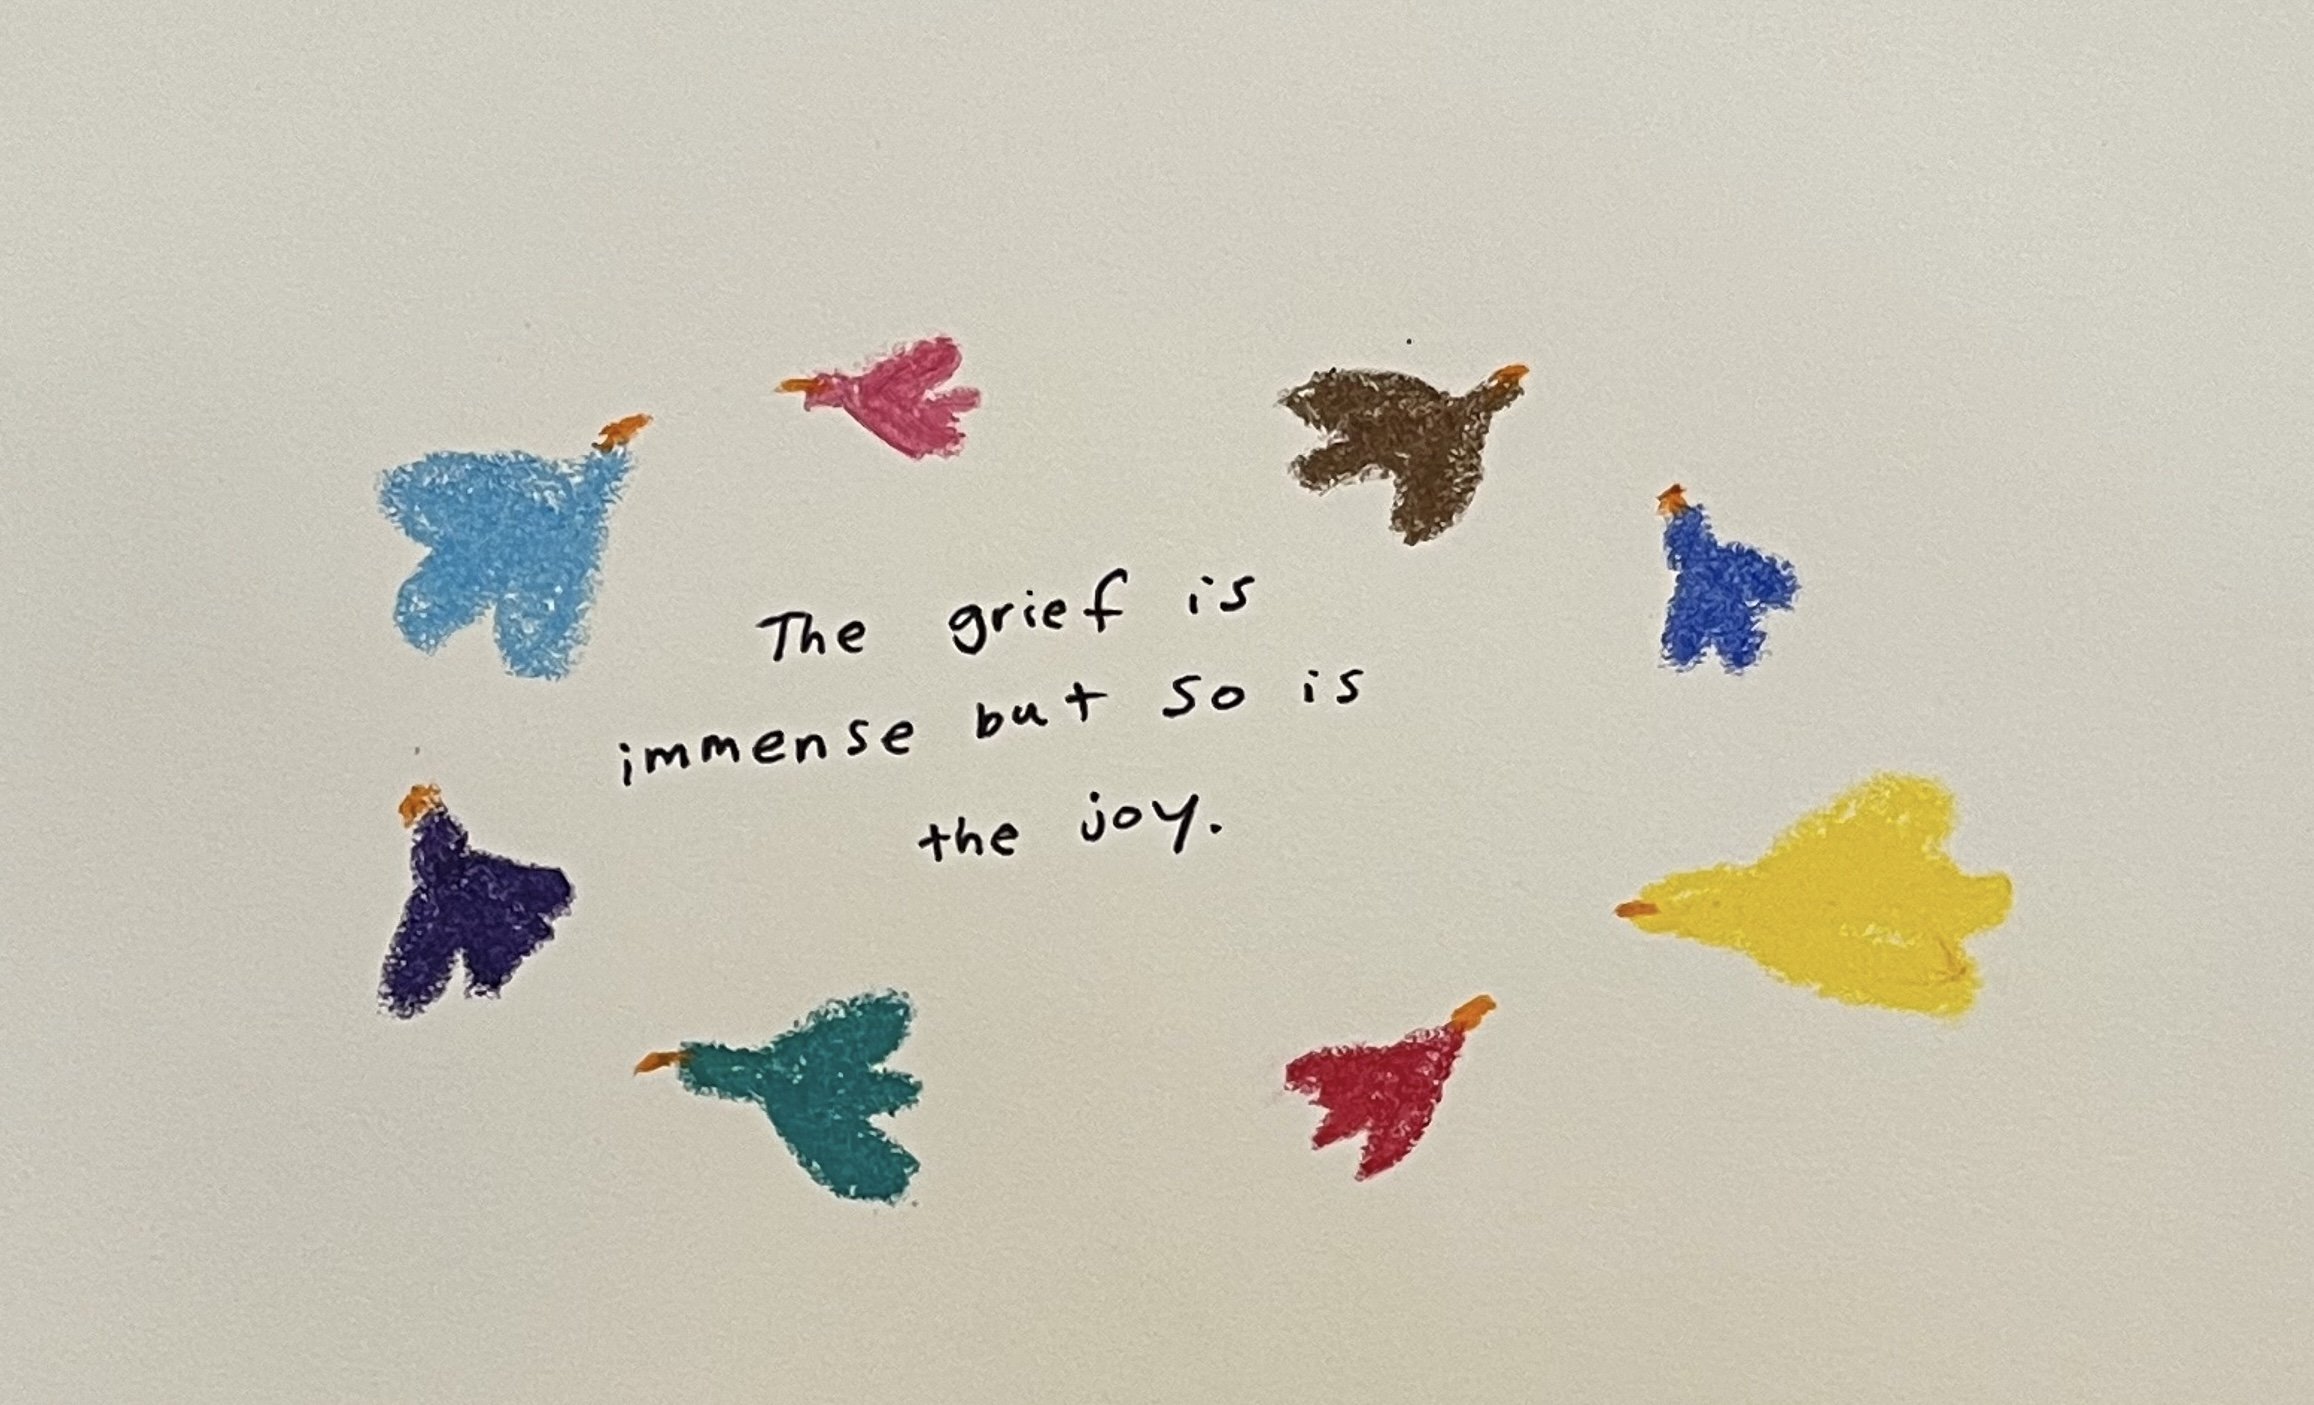 The grief is
immense but so is
the joy.